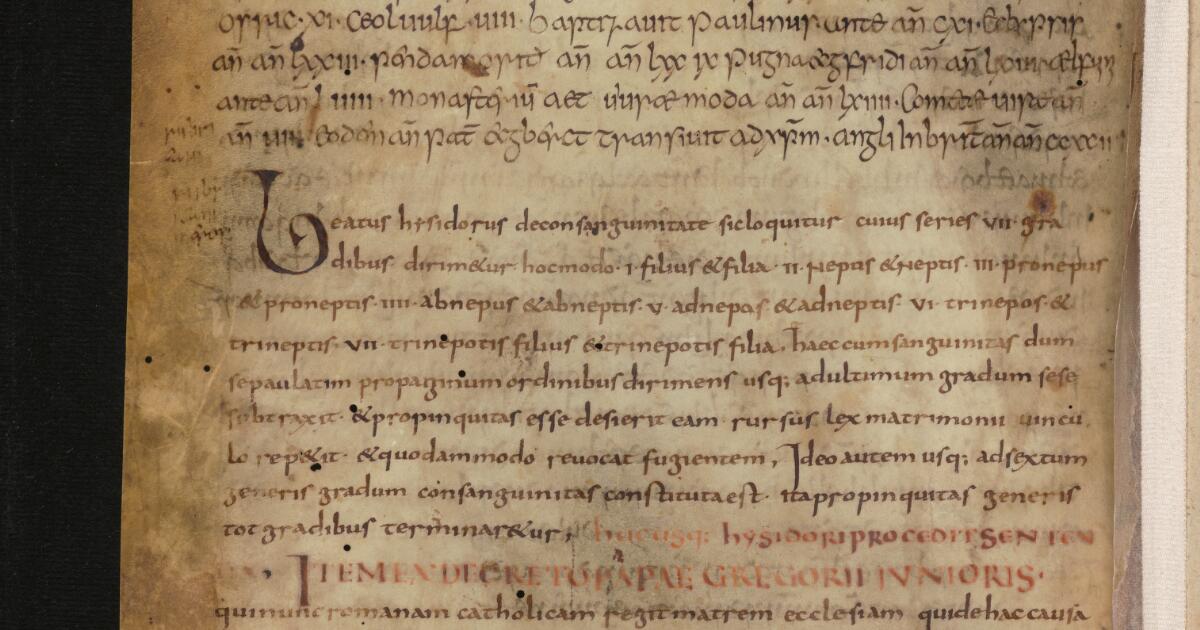 orric · xi · Ceoluulf · uiii · baptizauit paulinus · ante an̄ cxi · ecgfrið
an̄ an̄ lxxiii · pendan morte an̄ an̄ lxxix pugna ecgfridi an̄ an̄ lxiii · aelfuini
ante an̄ l iiii · monasteꝵ iū aet uiuræmoda an̄ an̄ lxiiii · Cometae uisae an̄
an̄ uiii · eodem an̄ pat̄ ecgberct transiuit ad xp̄m · angli in brit̄ an̄ an̄ ccxcii
Beatus hysidorus deconsanguinitate sicloquitur cuius series vii · gra
dibus dirim&ur · hocmodo · i · filius & filia · ii · Neptis & Neptis · iii · pronepus
& proneptis · iiii · abnepus & abneptis · v · adnepos & adneptis · vi · trinepos · &
trineptis · vii · trinepotis filius & trinepotis filia, haec cumsanguinitas dum
sepaulatim propaginum ordinibus dirimens usq; adultimum gradum sese
subtraxit · & propinquitas esse desierit eam · rursus lex matrimonii uincu
lo rep&it · & quodammodo reuocat fugientem, Ideo autem usq; adsextum
generis gradum consanguinitas constituta est · ita propinquitas generis
tot gradibus terminar&ur; hucusq: hysidori procedit senten
ITEM EX DECRETO PAPAE GREGORII IVNIORIS ·
qui nunc romanam catholicam regit matrem ecclesiam quidehac causa